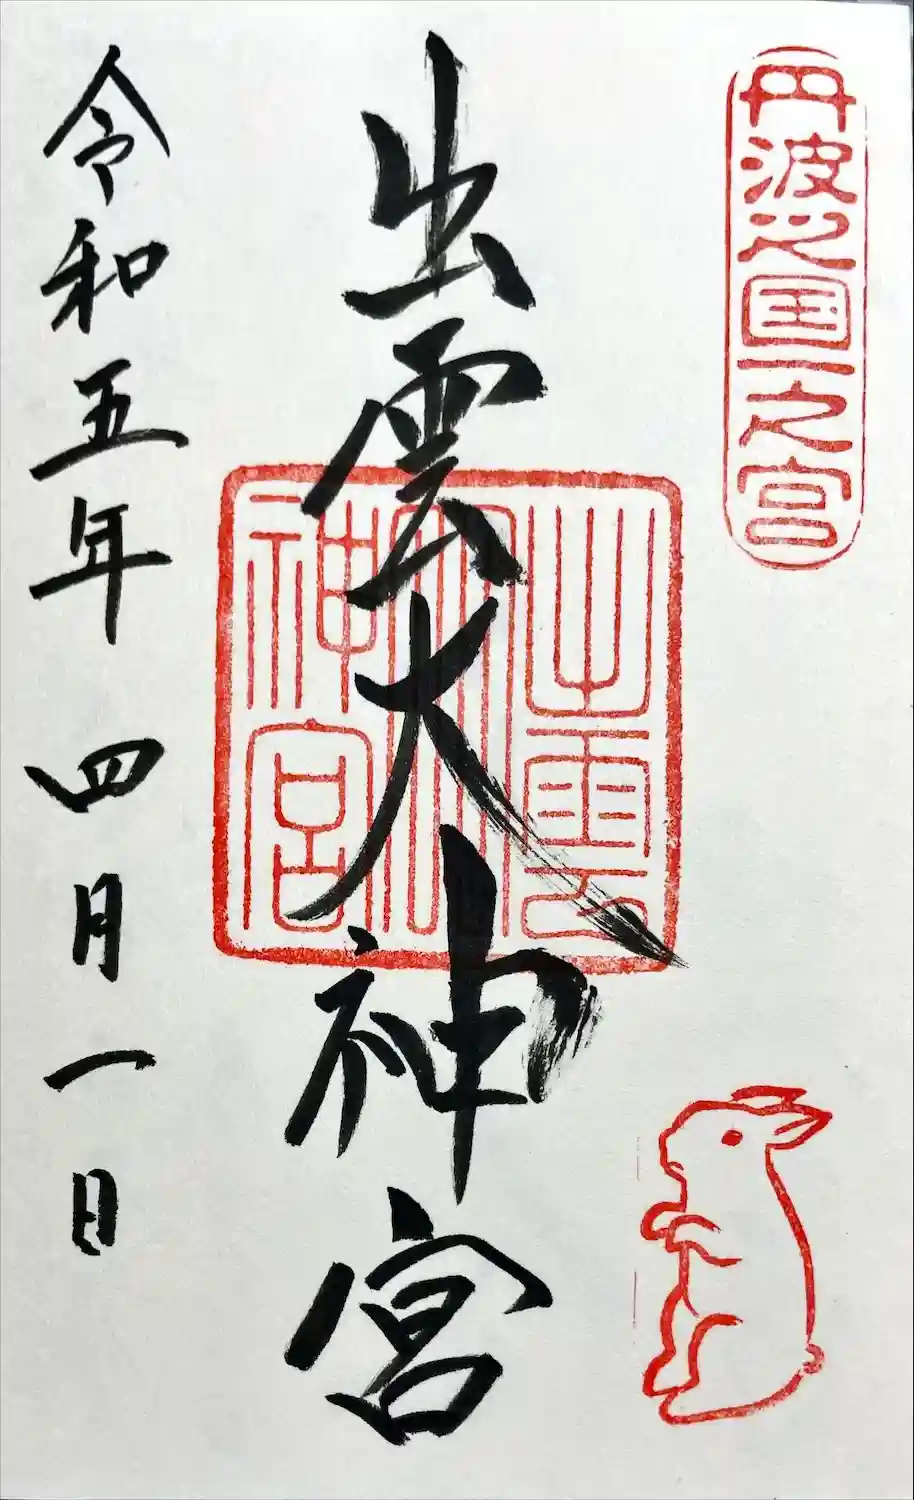 丹波之国一之宮
出雲大神宮
出雲
大
神宮
令和五年四月一日